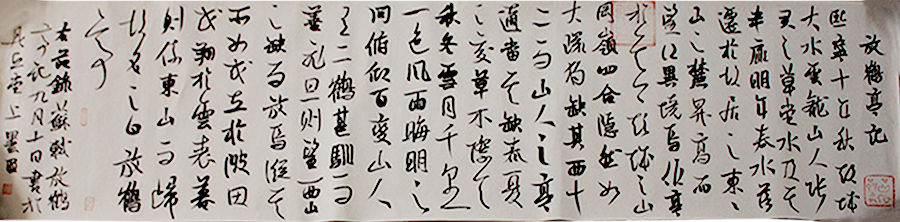 放鶴亭記
熙寧十年秋彭城
大水雲龍山人張
君之草堂水及其
半扉明年春水落
遷於故居之東〻
山之麓昇高而
望得異境焉作亭
於其上彭城之山
岡嶺四合隱然如
大環獨缺其西十
二而山人之亭
適當其缺春夏
之交草木際天
秋冬雪月千里
一色風雨晦明之
間俯仰百變山人
有二鶴甚馴而
善飛旦則望西山
之缺而放焉縱其
所如或立於陂田
或翔於雲表暮
則傃東山而歸
故名之曰放鶴
亭
右節錄蘇軾放鶴
亭記九月十一日書於
堂上